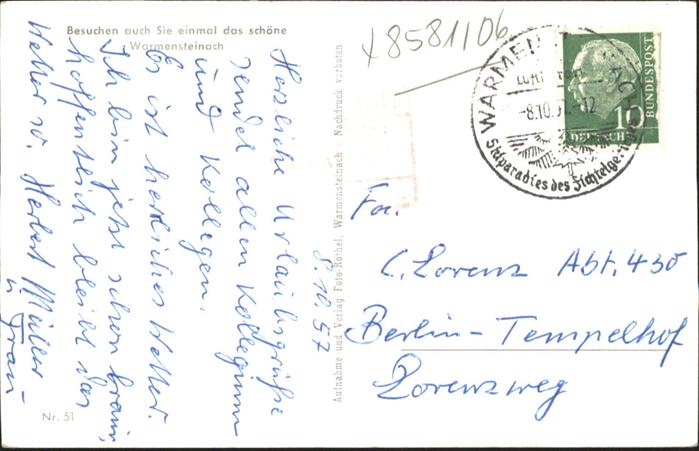 Besuchen auch Sie einmal das schöne
Warmensteinach
Herzliche Urlaubsgrüße
sendet allen Kolleginnen
und Kollegen.
Es ist herrliches Wetter.
Ich bin jetzt schon braun,
hoffentlich bleibt das
Wetter so. Herbert Müller
u. Frau
8.10.57
Nr. 51
Aufnahme und Verlag Foto-Rothel, Warmensteinach - Nachdruck verboten
x8581106
WARMEN
-8.10.57-12
Skiparadies des Fichtelge
10
DEUTSCHE
BUNDESPOST
Fa.
C. Lorenz Abt. 430
Berlin-Tempelhof
Lorenzweg